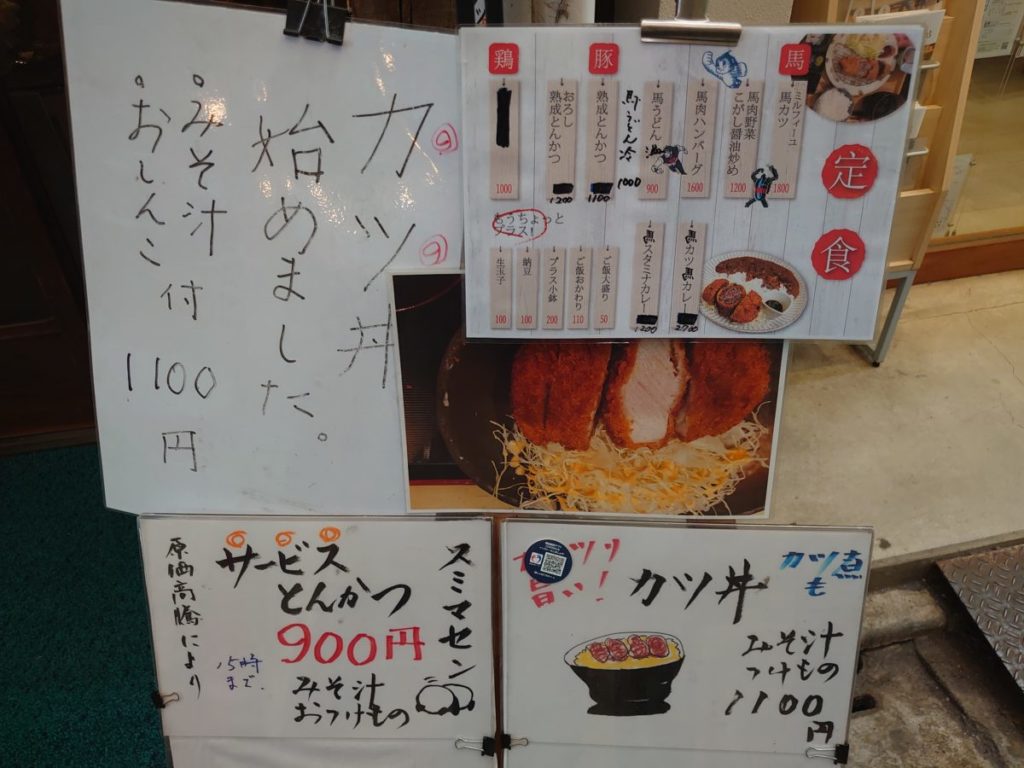 カツ丼
始めました。
みそ汁付
おしんこ
1100円
鶏
豚
馬
定食
ミルフィーユ
馬カツ
1800
馬肉野菜
こがし醤油炒め
1200
馬肉ハンバーグ
1600
馬うどん
900
馬うどん冷
1000
熟成とんかつ
1100
おろし
熟成とんかつ
1200
1000
もうちょっと
プラス!
馬カツ馬カレー
馬スタミナカレー
1200
ご飯大盛り
50
ご飯おかわり
110
プラス小鉢
200
納豆
100
生玉子
100
スミマセン
サービス
とんかつ
900円
みそ汁
おつけもの
15時
まで
原価高騰により
ガッツリ
旨い!
カツ丼
カツ煮
も
みそ汁
つけもの
1100
円